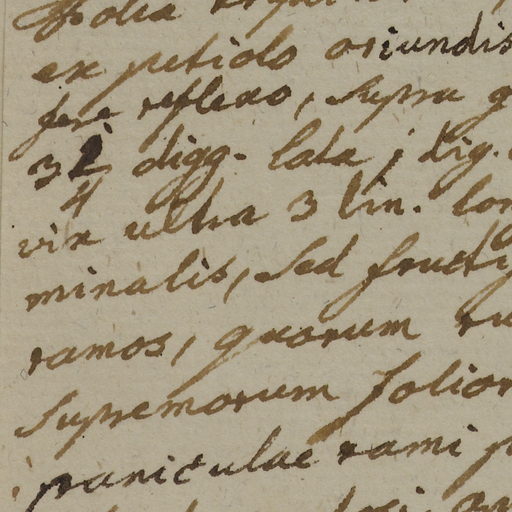 Folia
ex petiolo oriundis
fere reflexo, supra g
3 1/4 digg. lata, dig.
vix ultra 3 lin. lon
minalis, sed fructi
ramos, quorum ru
supremorum folior
paniculae rami p